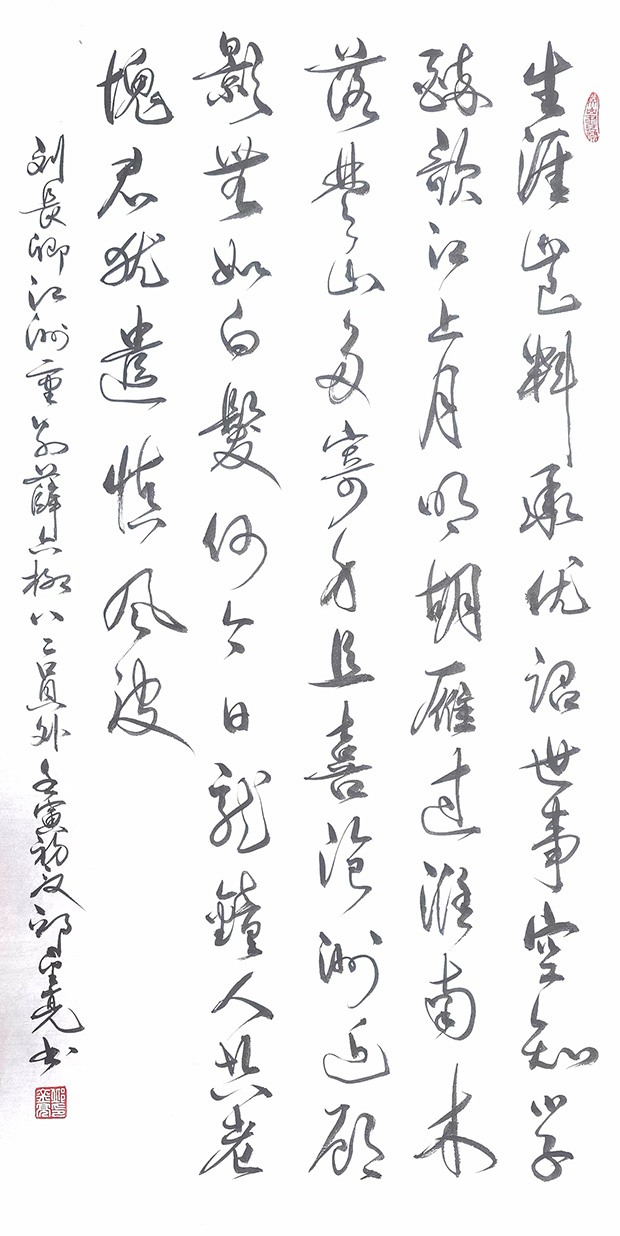 生涯豈料承优诏世事空知学
醉歌江上月明胡雁过淮南木
落楚山多寄身且喜沧洲近顾
影無如白髮何今日龙鐘人共老
愧君犹遣慎风波
刘長卿江洲重别薛六柳八二员外 壬寅初夏邱亮书